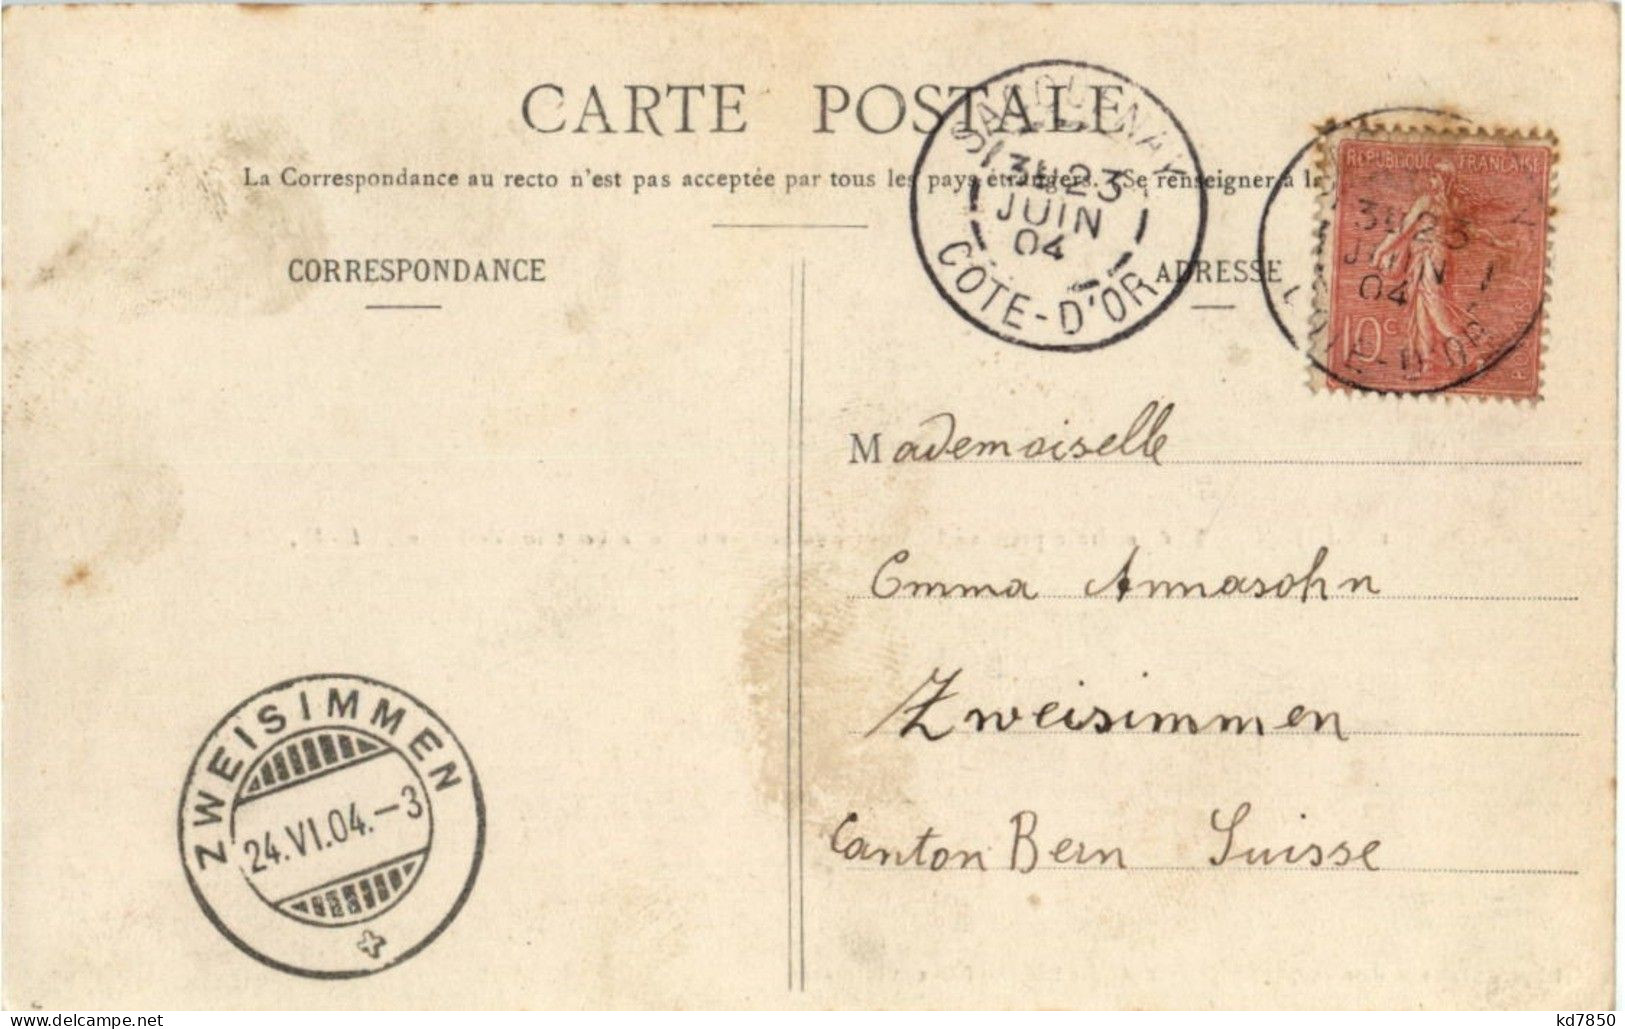 CARTE POSTALE
La Correspondance au recto n'est pas acceptée par tous les pays étrangers. Se renseigner à la
CORRESPONDANCE
ADRESSE
3E 23
JUIN
04
CÔTE-D'OR
REPUBLIQUE FRANÇAISE
3E 23
JUIN
04
10c
CÔTE-D'OR
Mademoiselle
Emma Annasohn
Zweisimmen
Canton Bern Suisse
ZWEISIMMEN
24.VI.04.-3
kd7850